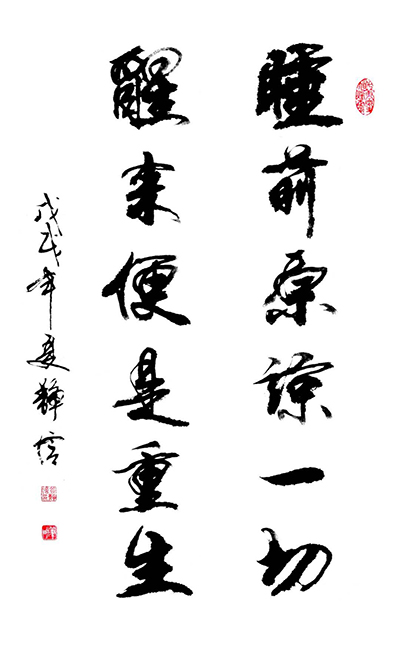 睡前原谅一切
醒来便是重生
戊戌年夏